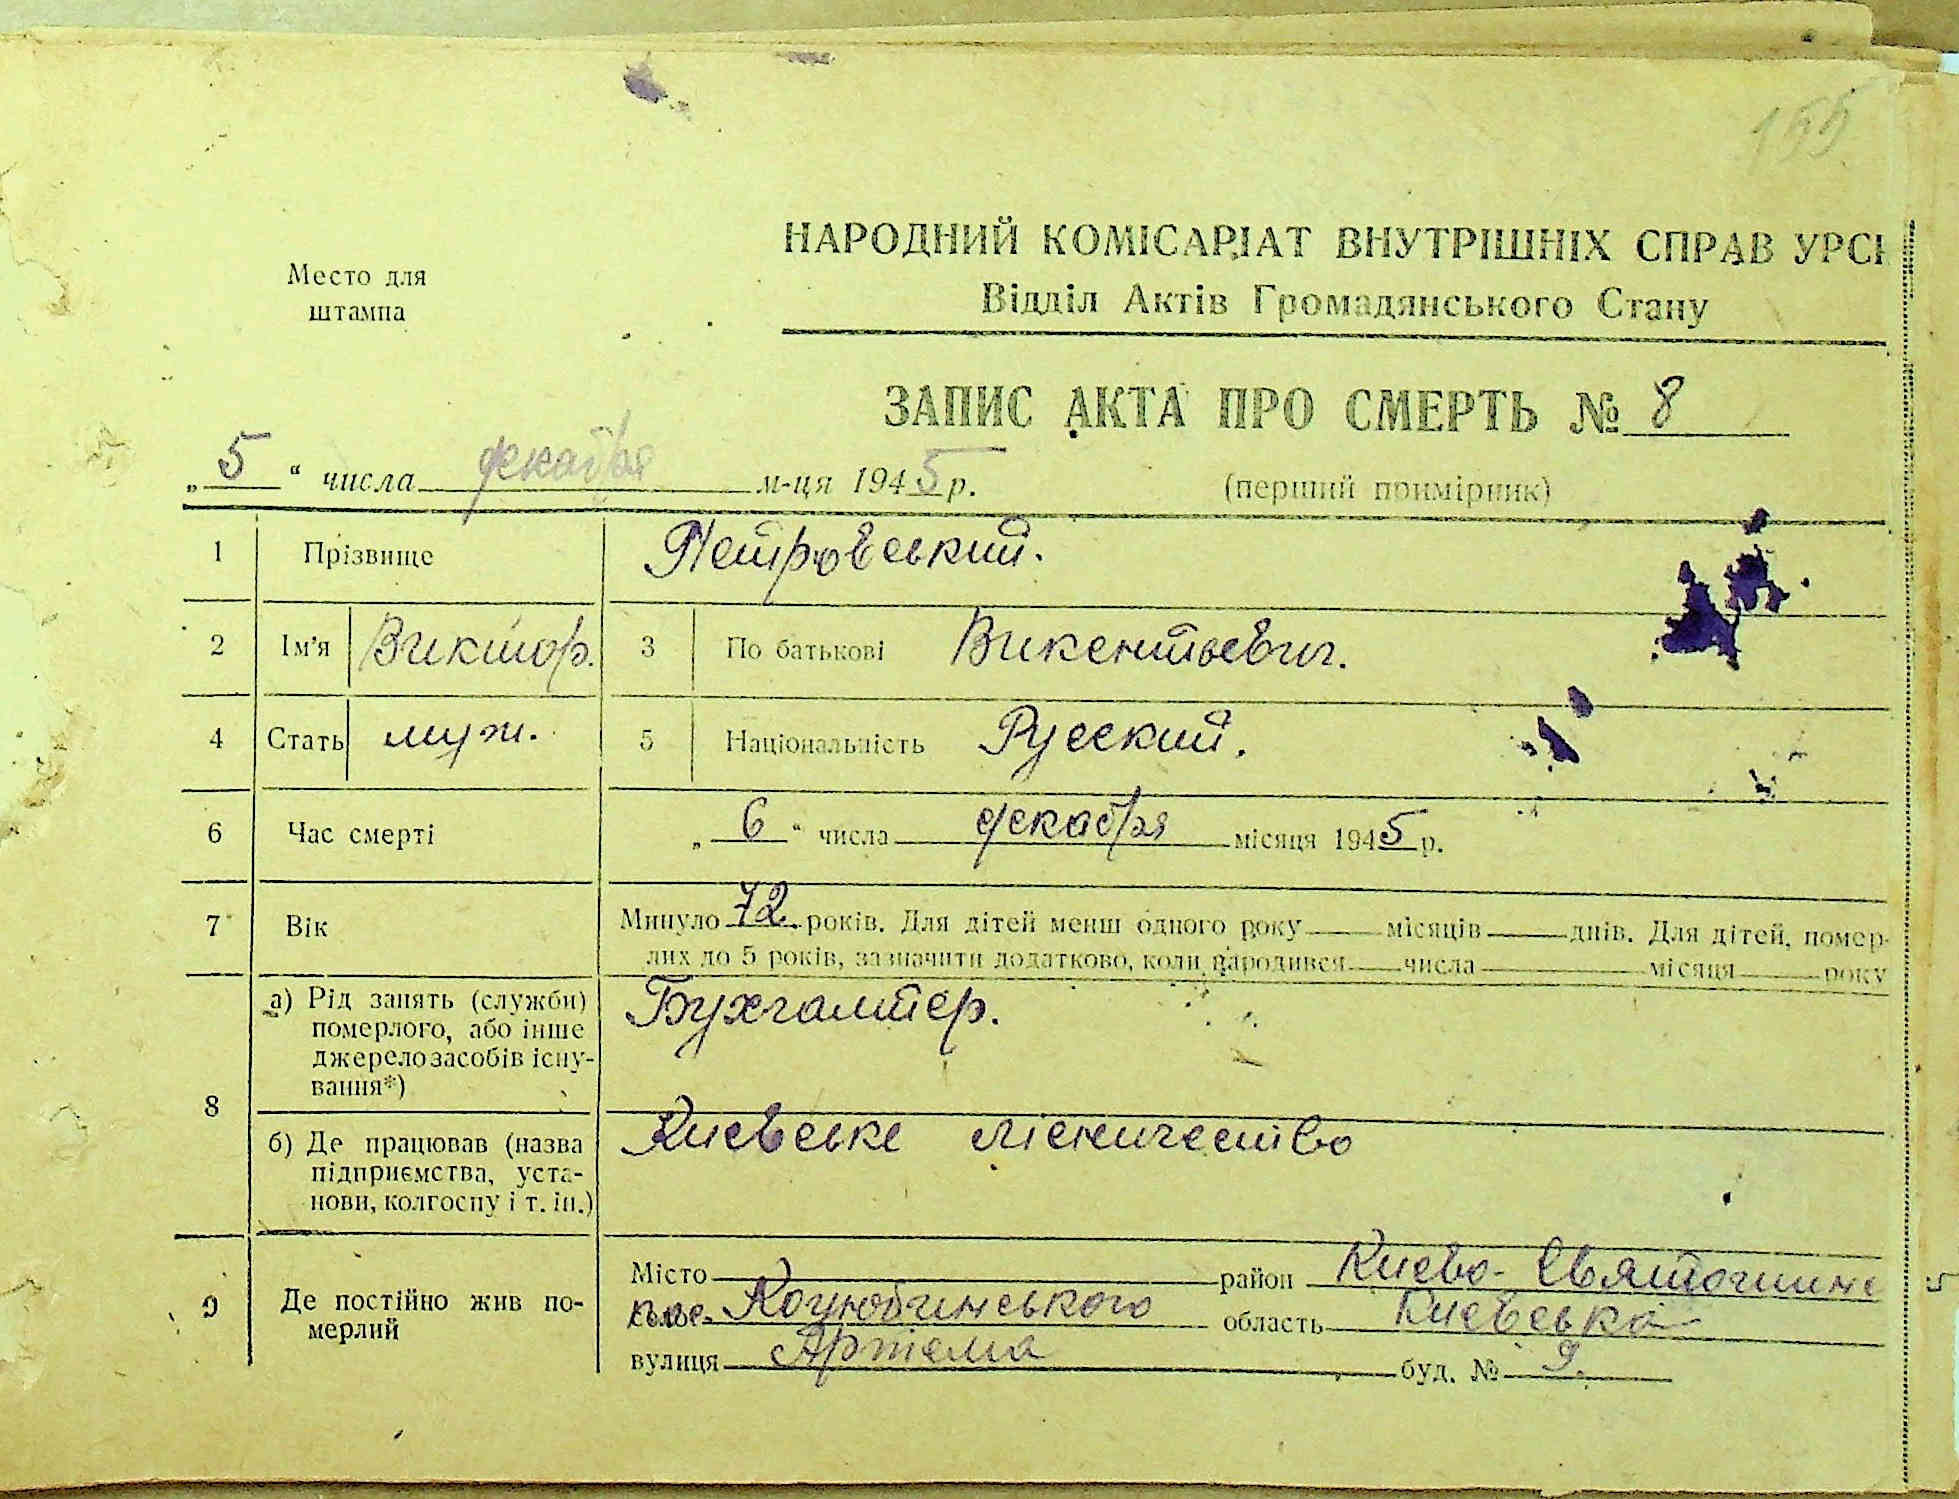 155
Место для
штампа
НАРОДНИЙ КОМІСАРІАТ ВНУТРІШНІХ СПРАВ УРСР
Відділ Актів Громадянського Стану
ЗАПИС АКТА ПРО СМЕРТЬ № 8
„5“ числа декабря м-ця 1945 р. (перший примірник)
1 Прізвище Петровський.
2 Ім'я Виктор. 3 По батькові Викентьевич.
4 Стать муж. 5 Національність Русский.
6 Час смерті „6“ числа декабря місяця 1945 р.
7 Вік Минуло 72 років. Для дітей менш одного року местяців днів. Для дітей, помер-
лих до 5 років, зазначити додатково, коли народився числа місяця року
8 а) Рід занять (служби)
померлого, або інше
джерело засобів існу-
вання*)
Бухгалтер.
б) Де працював (назва
підприємства, уста-
нови, колгоспу і т. ін.)
Киевське лісничество
9 Де постійно жив по-
мерлий
Місто район Киево-Святошинс
Коцюбинського область Киевська
вулиця Артема буд. № 9.